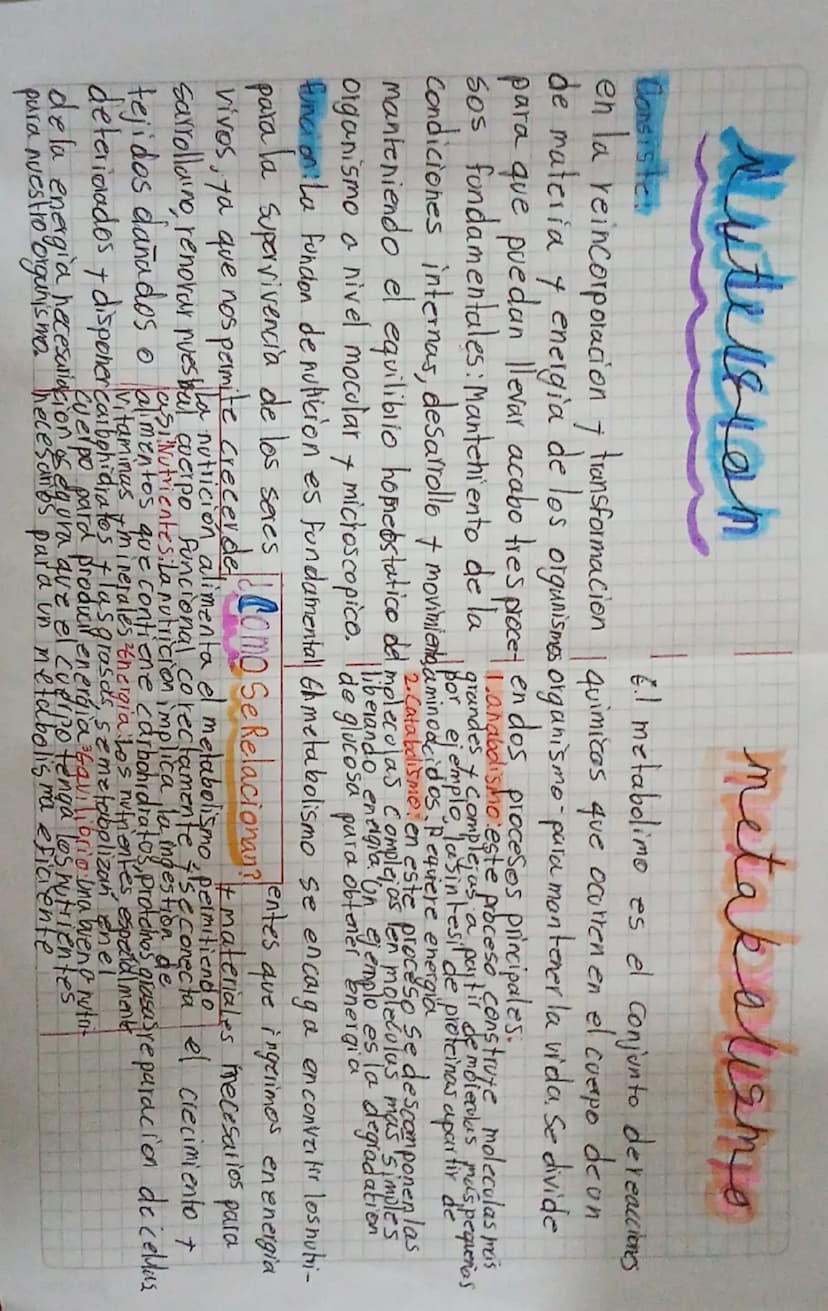 Nutricion
Consiste:
en la reincorporacion y transformacion
de materia y energia de los organismos
para que puedan llevar acabo tres proce-
sos fundamentales: Mantenimiento de la
condiciones internas, desarrollo y movimiento
manteniendo el equilibrio homeostatico del
organismo a nivel mocular y microscopico.
funcion: La funcion de nutricion es fundamental
para la supervivencia de los seres
vivos, ya que nos permite crecer, de
sarrollarno, renovar nues
tejidos dañados o
deteriorados y disponer
de la energia necesaria
para nuestro organismo.
metabolismo
El metabolimo es el conjunto de reacciones
quimicos que ocurren en el cuerpo de un
organismo-para montener la vida. Se divide
en dos procesos principales:
1.anabolismo: este proceso construye moleculas más
grandes y complejas a partir de molerulas más pequeñas
por ejemplo, la sintesis de proteinas apartir de
aminoácidos, requiere energía
2.Catabolismo: en este proceso se descomponen las
moleculas complejas en moleculas mas simples
liberando energía. Un ejemplo es la degradation
de glucosa para obtener energia
El metabolismo se encarga en convertir los nutri-
entes que ingerimos en energia
y materiales necesarios para
el crecimiento y
reparacion de celulas
¿Como Se Relacionan?
La nutricion alimenta el metabolismo, permitiendo
al cuerpo funcional corectamente y se conecta
asi: Nutrientes: La nutricion implica la ingestion de
almentos que contiene carbohidratos, proteinas, grasas,
vitaminas y minerales 2Energia: Los nutrientes, especialmente
carbohidratos y las grasas, se metabolizan en el
cuerpo para producir energía 3Equilibrio: Una buena nutri-
cion asegura que el cuerpo tenga los nutrientes
necesarios para un metabolismo eficiente